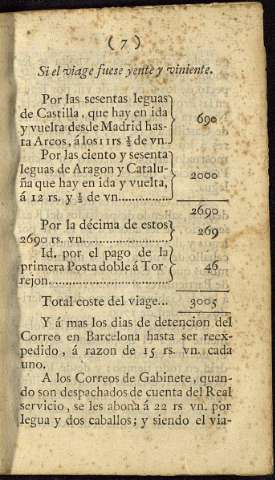 (7)
Si el viage fuese yente y viniente.
Por las sesentas leguas
de Castilla, que hay en ida
y vuelta desde Madrid has-
ta Arcos, á los 11 rs ½ de vn.
690
Por las ciento y sesenta
leguas de Aragon y Catalu-
ña que hay en ida y vuelta,
á 12 rs. y ½ de vn...............
2000
2690
Por la décima de estos
2690 rs. vn.......................
269
Id. por el pago de la
primera Posta doble á Tor
rejon..............................
46
Total coste del viage... 3005
Y á mas los dias de detencion del
Correo en Barcelona hasta ser reex-
pedido, á razon de 15 rs. vn. cada
uno.
A los Correos de Gabinete, quan-
do son despachados de cuenta del Real
servicio, se les abona á 22 rs vn. por
legua y dos caballos; y siendo el via-